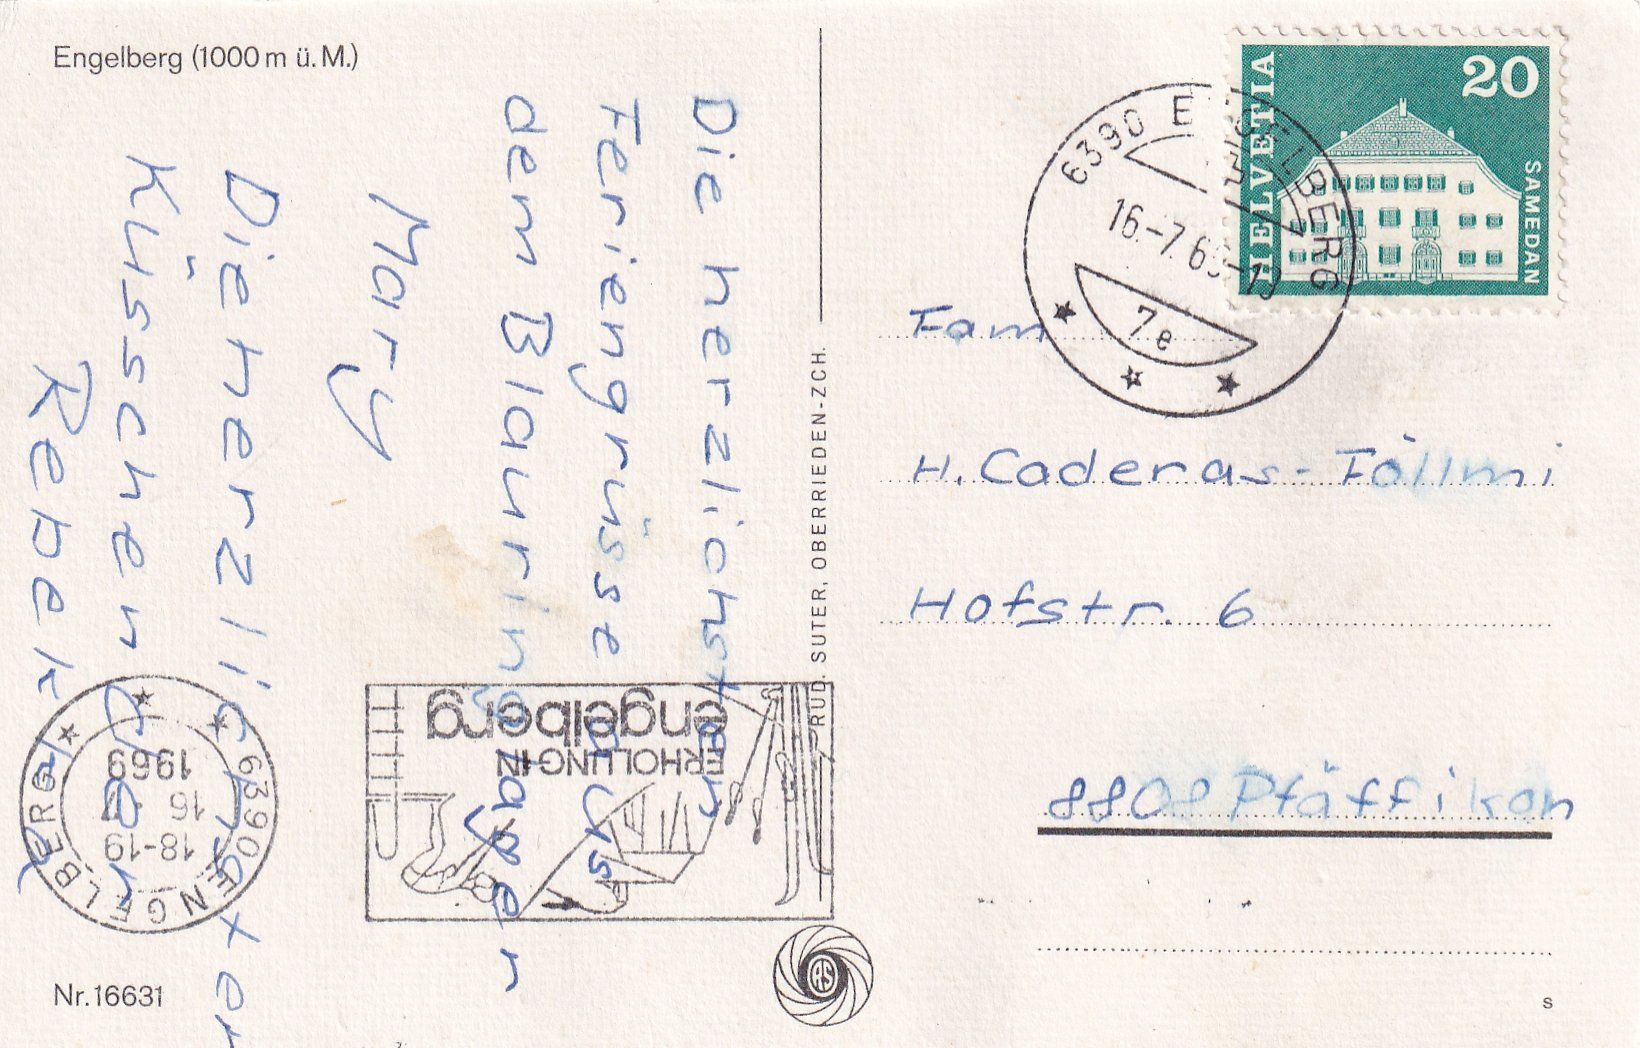 Engelberg (1000 m ü. M.)
Die herzlichsten
Feriengrüsse aus
dem Blauring lager
Mary
Die herzlichsten
Küsschen
Rebekka
Nr. 16631
6390 ENGELBERG
18-19
16
1969
ERHOLUNG IN
engelberg
RUD. SUTER, OBERRIEDEN-ZCH.
RS
HELVETIA
20
SAMEDAN
6390 ENGELBERG
16.-7.69
7e
Fam
H. Caderas-Föllmi
Hofstr. 6
8808 Pfäffikon
s